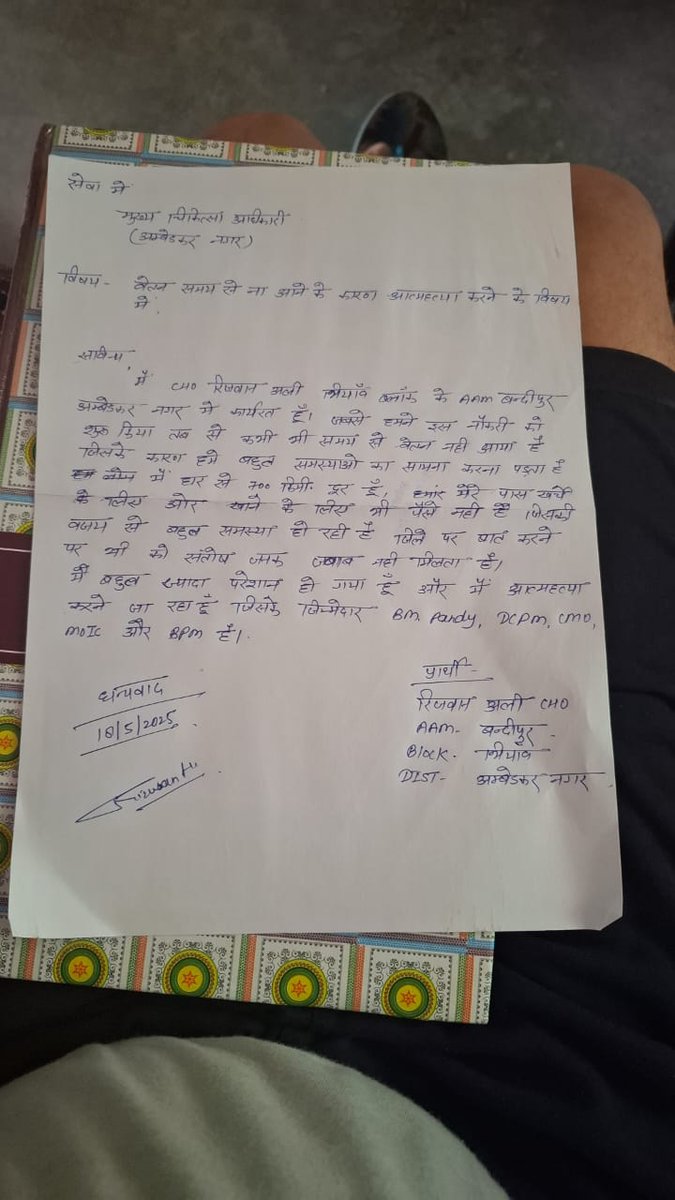 सेवा में
मुख्य चिकित्सा अधिकारी
(अम्बेडकर नगर)
विषय - वेतन समय से ना आने के कारण आत्महत्या करने के विषय
में,
में CHO रिजवान अली ब्लॉक के AAM बन्दीपुर
अम्बेडकर नगर में कार्यरत हूँ। जबसे हमने इस नौकरी को
शुरू किया तब से कभी भी समय से वेतन नही आया है
जिसके कारण हमे बहुत समस्याओ का सामना करना पड़ता है
में घर से 700 किमी. दूर हूँ, मेरे पास खर्चे
के लिए और खाने के लिए भी पैसे नही है जिसकी
वजह से बहुत समस्या हो रही है जिले पर बात करने
पर भी को संतोष जनक जवाब नही मिलता है।
में बहुत ज्यादा परेशान हो गया हूँ और में आत्महत्या
करने जा रहा हूँ जिसके जिम्मेदार BM Pandy, DCPM, CMO,
MOIC और BPM है।
धन्यवाद
18/5/2025
प्रार्थी -
रिजवान अली CHO
AAM- बन्दीपुर
Block-
DIST- अम्बेडकर नगर